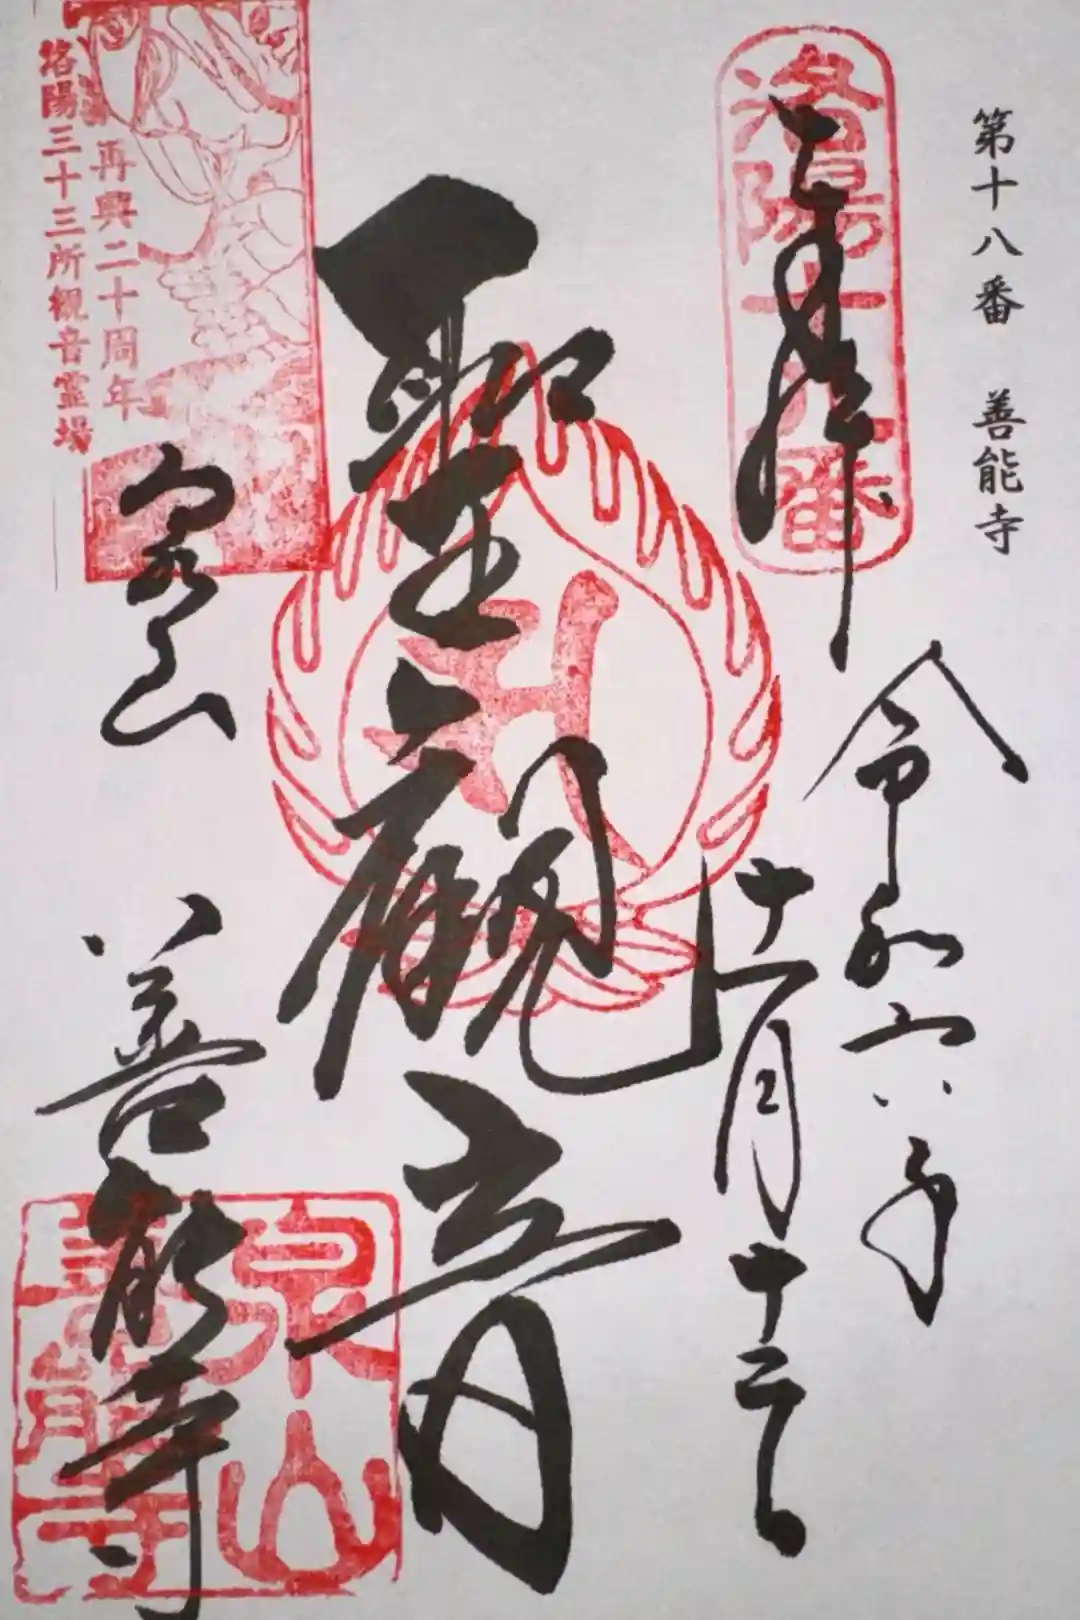 第十八番　善能寺
洛陽十八番
奉拝
令和六年
十一月十三日
聖観音
再興二十周年
洛陽三十三所観音霊場
泉山
善能寺
泉山
善能寺